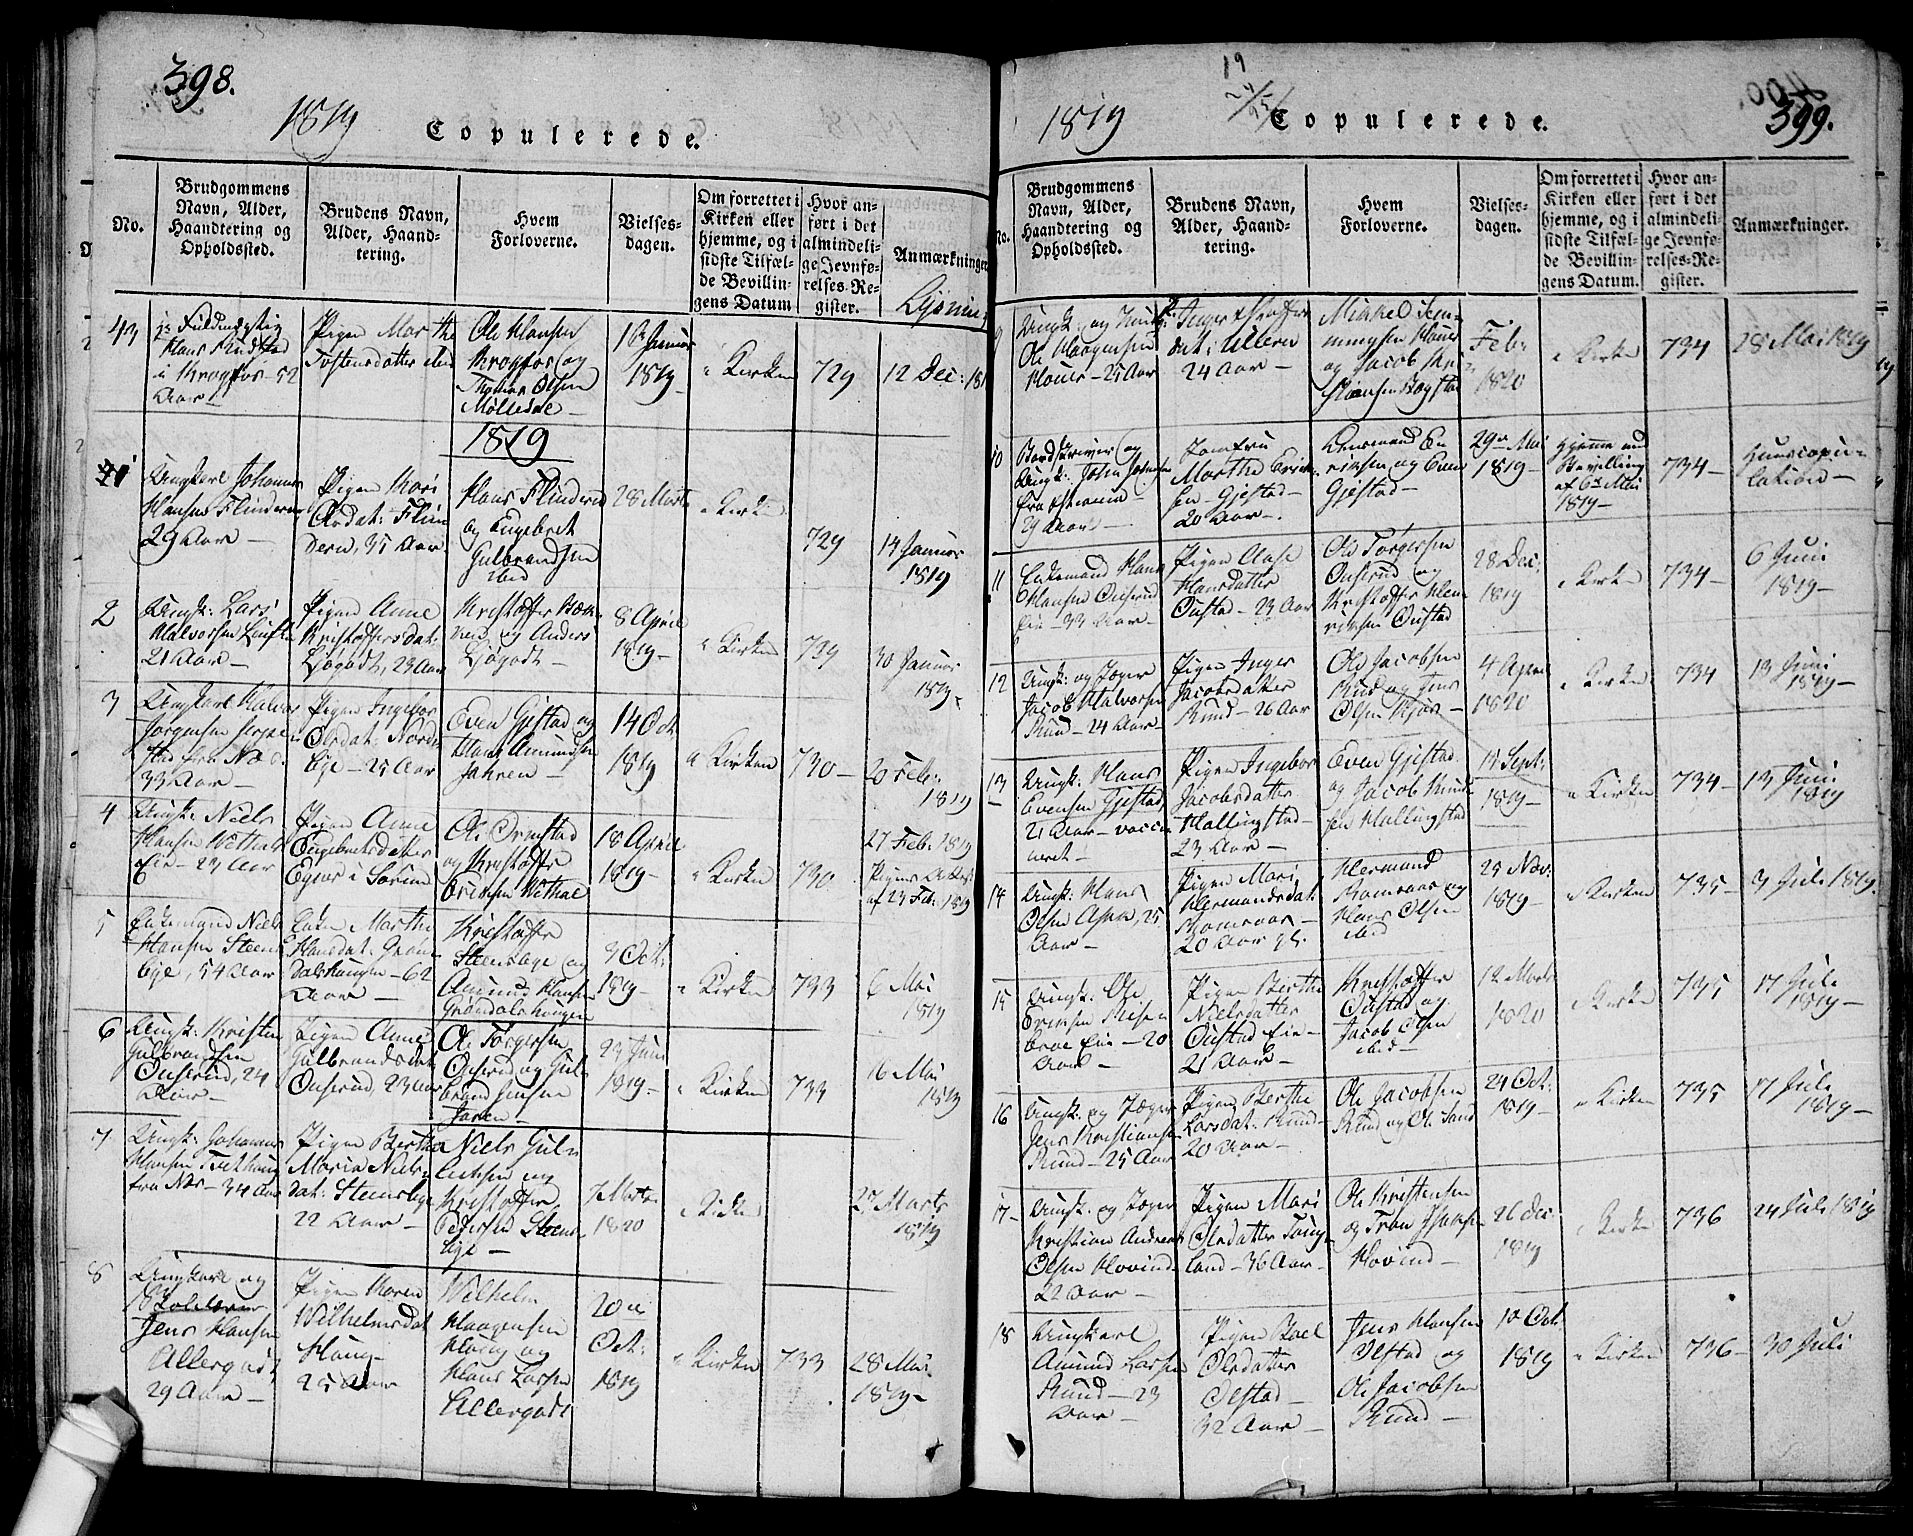 398.
1819
Copulerede.
No.
Brudgommens Navn, Alder, Haandtering og Opholdssted.
Brudens Navn, Alder, Haandtering.
Hvem Forloverne.
Vielsesdagen.
Om forrettet i Kirken eller hjemme, og i sidste Tilfælde Bevillingens Datum
Hvor anført i det almindelige Jevnførelses-Register.
Anmærkninger
43
Hans
i Krogfos - 52
Aar -
Pigen Marthe
Tostensdatter
Ole Hansen
Krogfos og
Olsen
16 Januar
1819 -
Kirken
729
12 Dec: 181
1819
1
Ungkarl Johannes
Hansen Flinderen
29 Aar -
Pigen Kari
Olsdat: Flin
deren, 35 Aar
Hans Flinderen
og Engebret
Gulbrandsen
ibid
28 Marts
Kirke
729
14 Januar
1819
2
Ungk: Lars
Halvorsen
21 Aar -
Pigen Anne
Kristoffersdat:
Ljøgodt, 23 Aar
Kristoffer
og Anders
Ljøgodt -
8 April
1819 -
Kirken
729
30 Januar
1819 -
3
Ungkarl Halvor
Jørgensen
33 Aar -
Pigen Ingebor
Olsdat: Norde
Eje - 25 Aar
Even Gjestad og
Hans Amundsen
Jahren -
14 Oct
1819
Kirken
730 -
20 Feb:
1819
4
Ungk: Niels
Hansen
Eie - 23 Aar
Pigen Anne
Engebretsdatter
Ole Ormstad
og Kristoffer
18 April
1819 -
Kirken
730
27 Feb. 1819
Pigens Attest
af 23 Feb: 1819
5
Enkemand Niels
Hansen Steens
Eje, 54 Aar
Enken Marthe
Hansdat: Gren
dalshaugen - 62
Aar -
Kristoffer
Steenseje og
Amund Hansen
Grøndalshaugen
9 Oct:
1819 -
Kirken
733
6 Mai
1819
6
Ungk: Kristen
Gulbrandsen
Onserud, 24
Aar -
Pigen Anne
Gulbrandsdat
Onserud, 23 Aar
Ole Torgersen
Onserud og Gul
brand Jensen
Jaren -
23 Juni
1819 -
Kirken
733
16 Mai
1819
7
Ungk: Johannes
Hansen
fra Næs - 34 Aar
Pigen Berthe
Maria Niels
dat: Steenseje
22 Aar -
Niels Gul
Kristoffer
Pedersen Steens
Eje -
7 Marts
1820
Kirken
27 Marts
1819
8
Ungkarl og
Jens Hansen
Allergodt
29 Aar -
Pigen Maren
Wilhelmsdat
Haug
25 Aar
Wilhelm
Haagensen
Haug og
Hans Larsen
Allergodt
20de
Oct:
1819
Kirken
733
28 Mai
1819 -
19
24/25
1819
Copulerede.
399.
No.
Brudgommens Navn, Alder, Haandtering og Opholdssted.
Brudens Navn, Alder, Haandtering.
Hvem Forloverne.
Vielsesdagen.
Om forrettet i Kirken eller hjemme, og i sidste Tilfælde Bevillingens Datum.
Hvor anført i det almindelige Jevnførelses-Register.
Anmærkninger.
9
Ole Haagensen
Houer - 25 Aar
Inger Kristoffers
dat: Ulleren
24 Aar -
Mikkel Jem
mingsen Houer
og Jacob Kri
stiansen Bogstad
Feb:
1820
Kirke
734
28 Mai 1819
10
Bordskriver og
Ungk: John
29 Aar -
Jomfru
Marthe Erik
sen - Gjestad -
20 Aar -
Lensmand
og Even
Gjestad -
29de Mai
1819 -
Hjemme ved
Bevilling
af 6te Mai
1819 -
734 -
Huuscopu-
lation -
11
Enkemand Hans
Hansen Onserud
Eie - 33 Aar -
Pigen Aase
Hansdatter
Onstad - 23 Aar
Ole Torgersen
Onserud og
Kristoffer Hen
riksen Onstad
28 Dec:
1819
Kirken
734 -
6 Juni
1819 -
12
Ungk: og Jæger
Jacob Halvorsen
Ruud - 24 Aar
Pigen Inger
Jacobsdatter
Ruud - 26 Aar
Ole Jacobsen
Ruud og Jens
Olsen
4 April
1820
Kirken
734
13 Juni
1819 -
13
Ungk: Hans
Evensen Gjestad,
21 Aar - vacci
neret -
Pigen Ingebor
Jacobsdatter
Hallingstad -
23 Aar -
Even Gjestad
og Jacob Knud
sen Hallingstad
15 Sept:
1819 -
Kirken
734 -
13 Juni
1819
14
Ungk: Hans
Olsen Asper, 25
Aar -
Pigen Mari
Hermandsdat
Romsaas -
20 Aar gl:
Hermand
Romsaas og
Hans Olsen
ibid
25 Nov:
1819 -
Kirken
735 -
3 Juli 1819.
15
Ungk: Ole
Eriksen
Eie - 20
Aar -
Pigen Berthe
Nielsdatter
Onstad Eie -
21 Aar -
Kristoffer
Onstad og
Jacob Olsen
ibid -
12 Marts
1820
Kirken
735
17 Juli
1819 -
16
Ungk: og Jæger
Jens Kristiansen
Ruud - 25 Aar
Pigen Berthe
Larsdat: Ruud -
20 Aar -
Ole Jacobsen
Ruud og Ole Sand
24 Oct:
1819 -
Kirken
735
17 Juli
1819 -
17 -
Ungk. og Jæger
Kristian Andreas
Olsen Hovind
22 Aar -
Pigen Mari
Olsdatter Tang
land - 36 Aar -
Ole Kristensen
og Tron
Hovind -
26 Dec:
1819
Kirke
736
24 Juli 1819
18
Ungkarl
Amund Larsen
Ruud - 23
Aar -
Pigen Boel
Olsdatter
Olstad -
32 Aar -
Jens Hansen
Olstad og
Ole Jacobsen
Ruud -
10 Oct:
1819
Kirken
736 -
30 Juli